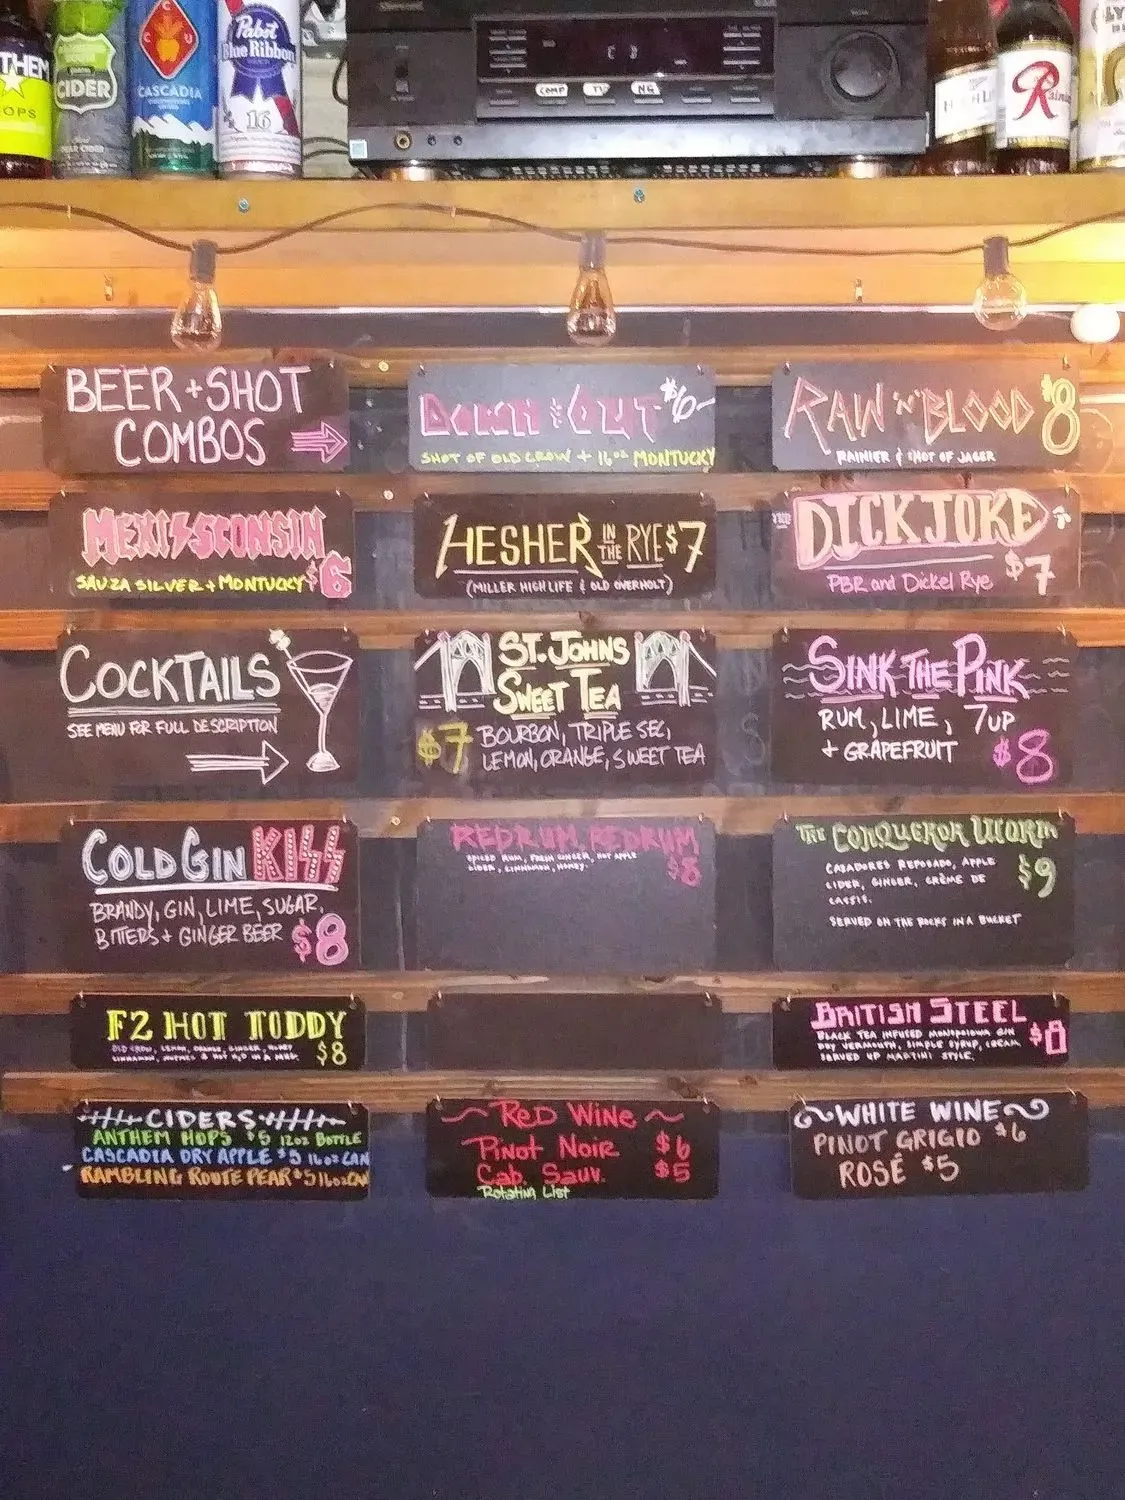 CIDER
CASCADIA
Pabst
Blue Ribbon
16
COMP
TV
R
BEER + SHOT
COMBOS
DOWN & OUT $6-
SHOT OF OLD CROW + 16oz MONTUCKY
RAIN 'N' BLOOD $8
RAINIER & SHOT OF JAGER
MEXISCONSIN
SAUZA SILVER + MONTUCKY $6
HESHER IN THE RYE $7
(MILLER HIGH LIFE & OLD OVERHOLT)
THE DICK JOKE
PBR and Dickel Rye $7
COCKTAILS
SEE MENU FOR FULL DESCRIPTION
ST. JOHNS
SWEET TEA
$7 BOURBON, TRIPLE SEC,
LEMON, ORANGE, SWEET TEA
SINK THE PINK
RUM, LIME, 7UP
+ GRAPEFRUIT $8
COLD GIN KISS
BRANDY, GIN, LIME, SUGAR,
BITTERS + GINGER BEER $8
REDRUM REDRUM
SPICED RUM, FRESH GINGER, HOT APPLE
CIDER, CINNAMON, HONEY. $8
THE CONQUEROR WORM
CAZADORES REPOSADO, APPLE
CIDER, GINGER, CRÈME DE
CASSIS. $9
SERVED ON THE ROCKS IN A BUCKET
F2 HOT TODDY
$8
BRITISH STEEL
BLACK TEA INFUSED MONOPOLOWA GIN
DRY VERMOUTH, SIMPLE SYRUP, CREAM
SERVED UP MARTINI STYLE.
CIDERS
ANTHEM HOPS $5 12oz BOTTLE
CASCADIA DRY APPLE $5 16oz CAN
RAMBLING ROUTE PEAR $5 16oz CAN
RED WINE
Pinot Noir $6
Cab. Sauv. $5
Rotating List
WHITE WINE
PINOT GRIGIO $6
ROSÉ $5